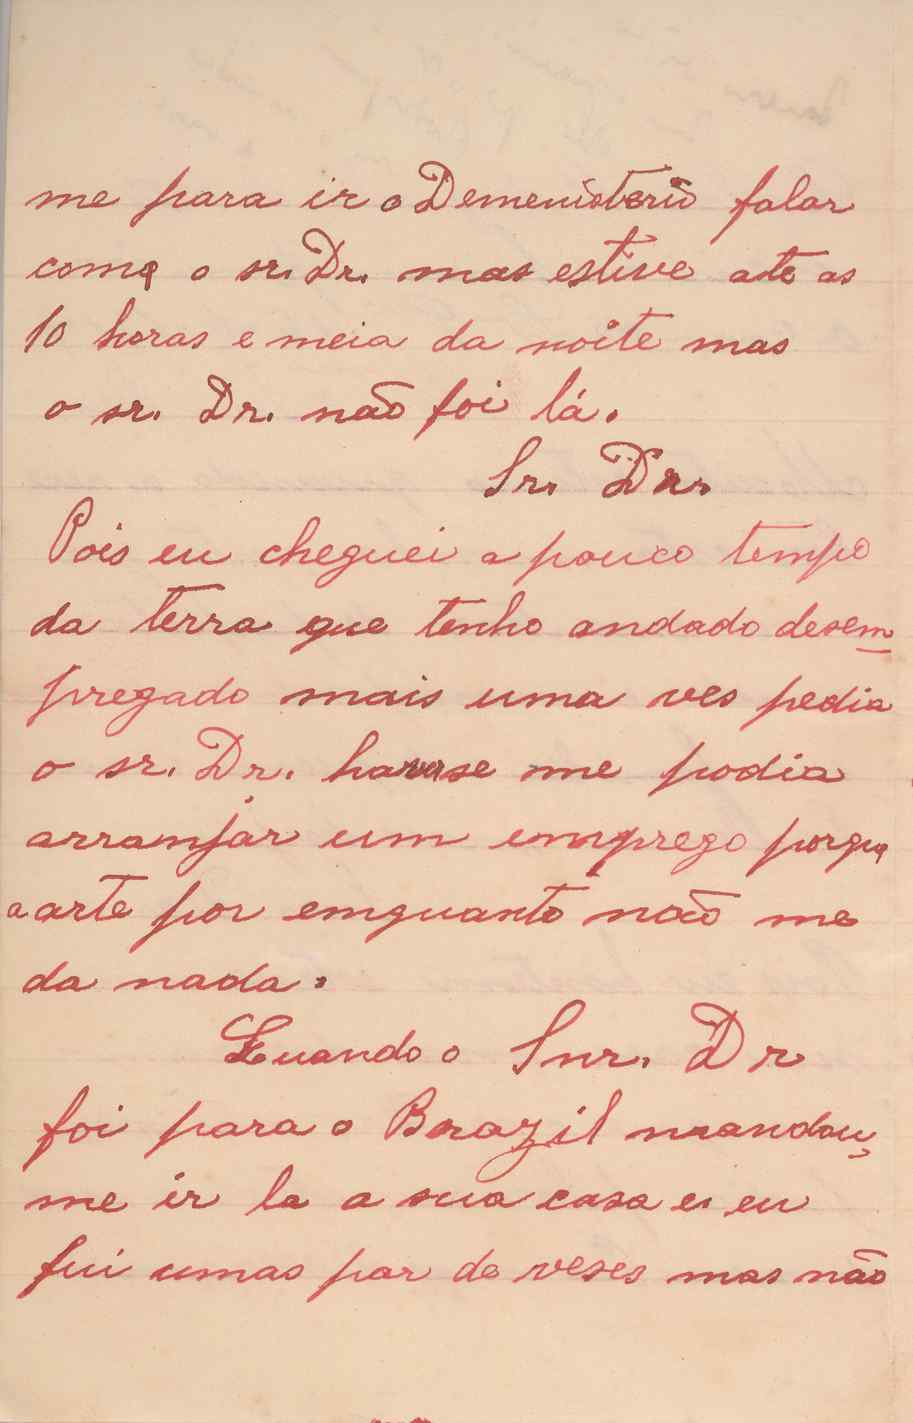 me para ir o Demenisterio falar
come o sr. Dr. mas estive ate as
10 horas e meia da noite mas
o sr. Dr. não foi lá.
Sr. Dr.
Pois eu cheguei a pouco tempo
da terra que tenho andado desem
pregado mais uma ves pedia
o sr. Dr. havese me podia
arranjar um emprego porque
a arte por emquanto não me
da nada.
Quando o Snr. Dr
foi para o Brazil mandou
me ir la a sua casa e eu
fui umas par de veses mas não